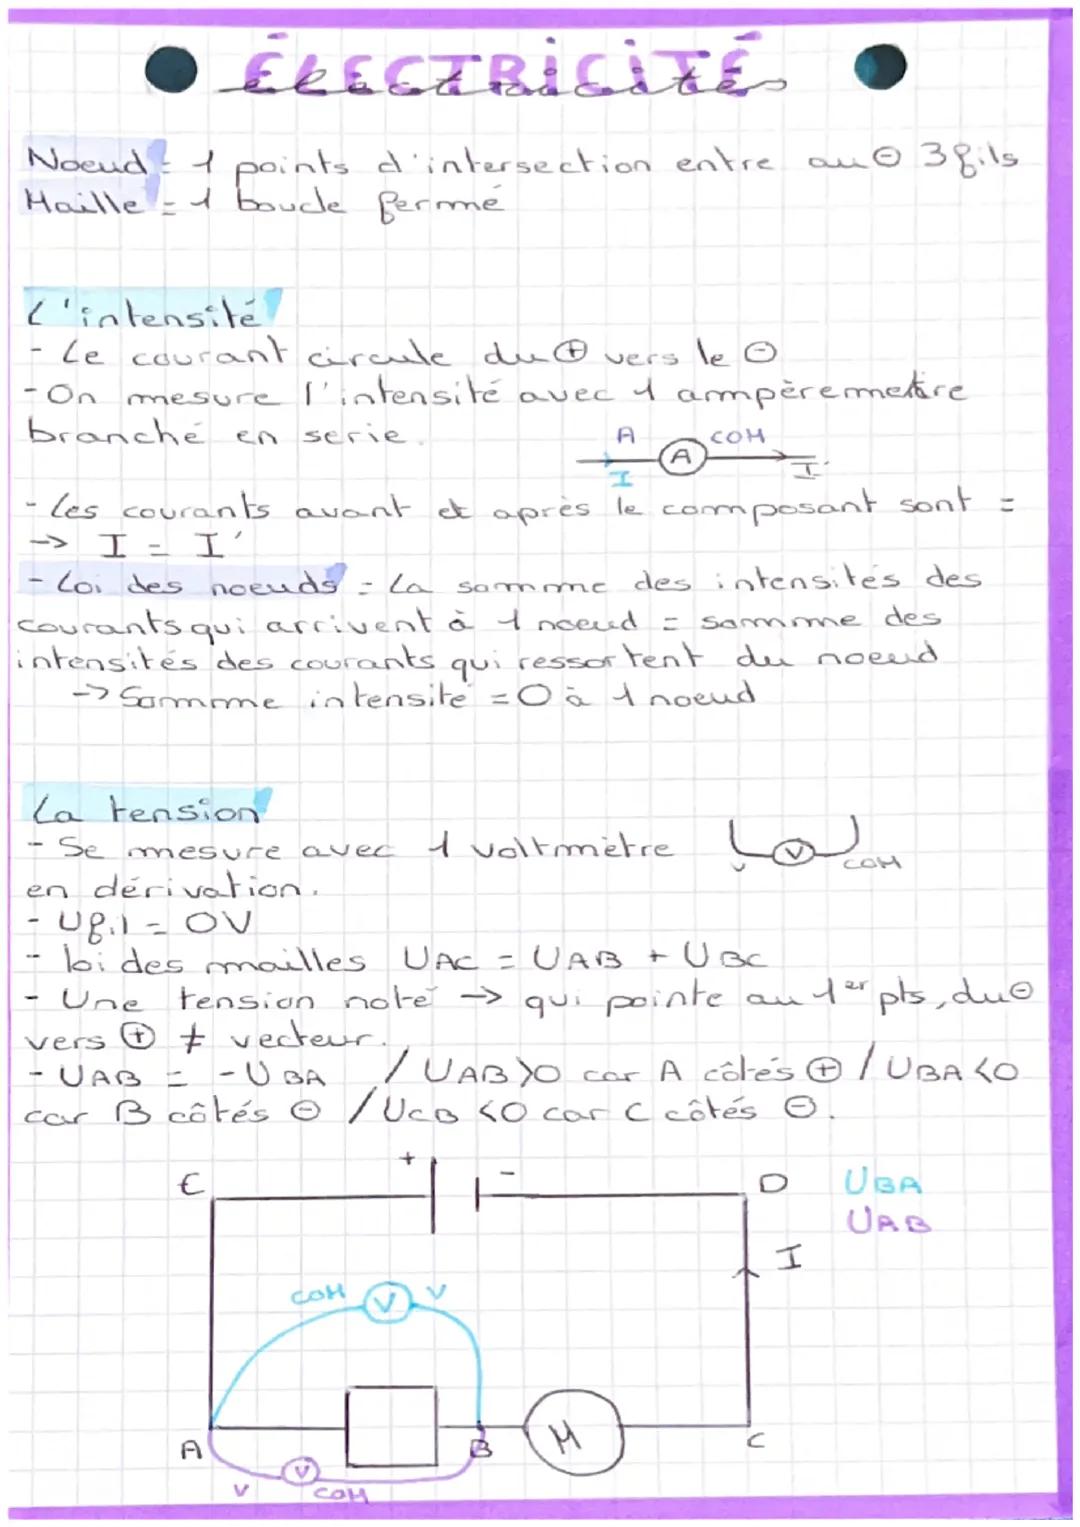 ÉLECTRICITÉ
Électricités
Noeud = 1 points d'intersection entre au ⊖ 3 fils
Maille = 1 boucle fermé
L'intensité
- Le courant circule du ⊕ vers le ⊖
- On mesure l'intensité avec 1 ampèremetre
branché en serie.
A COM
A
I I'
- Les courants avant et après le composant sont =
-> I = I'
- Loi des noeuds = La somme des intensités des
courants qui arrivent à 1 noeud = somme des
intensités des courants qui ressortent du noeud
-> Somme intensité = 0 à 1 noeud
La tension
- Se mesure avec 1 voltmètre
V V COM
en dérivation.
- Ufil = 0V
- loi des mailles UAC = UAB + UBC
- Une tension noté -> qui pointe au 1er pts, du ⊖
vers ⊕ ≠ vecteur.
- UAB = -UBA / UAB>0 car A côtés ⊕ / UBA<0
car B côtés ⊖ / UCB <0 car C côtés ⊖.
E + - D UBA
UAB
I
COM V V
A B M C
V V COM